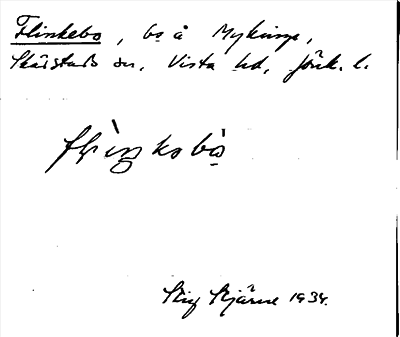 Flinkebo, bo å Mykinge,
Skärstads sn. Vista hd, Jönk. l.
Stig Stjärne 1934.